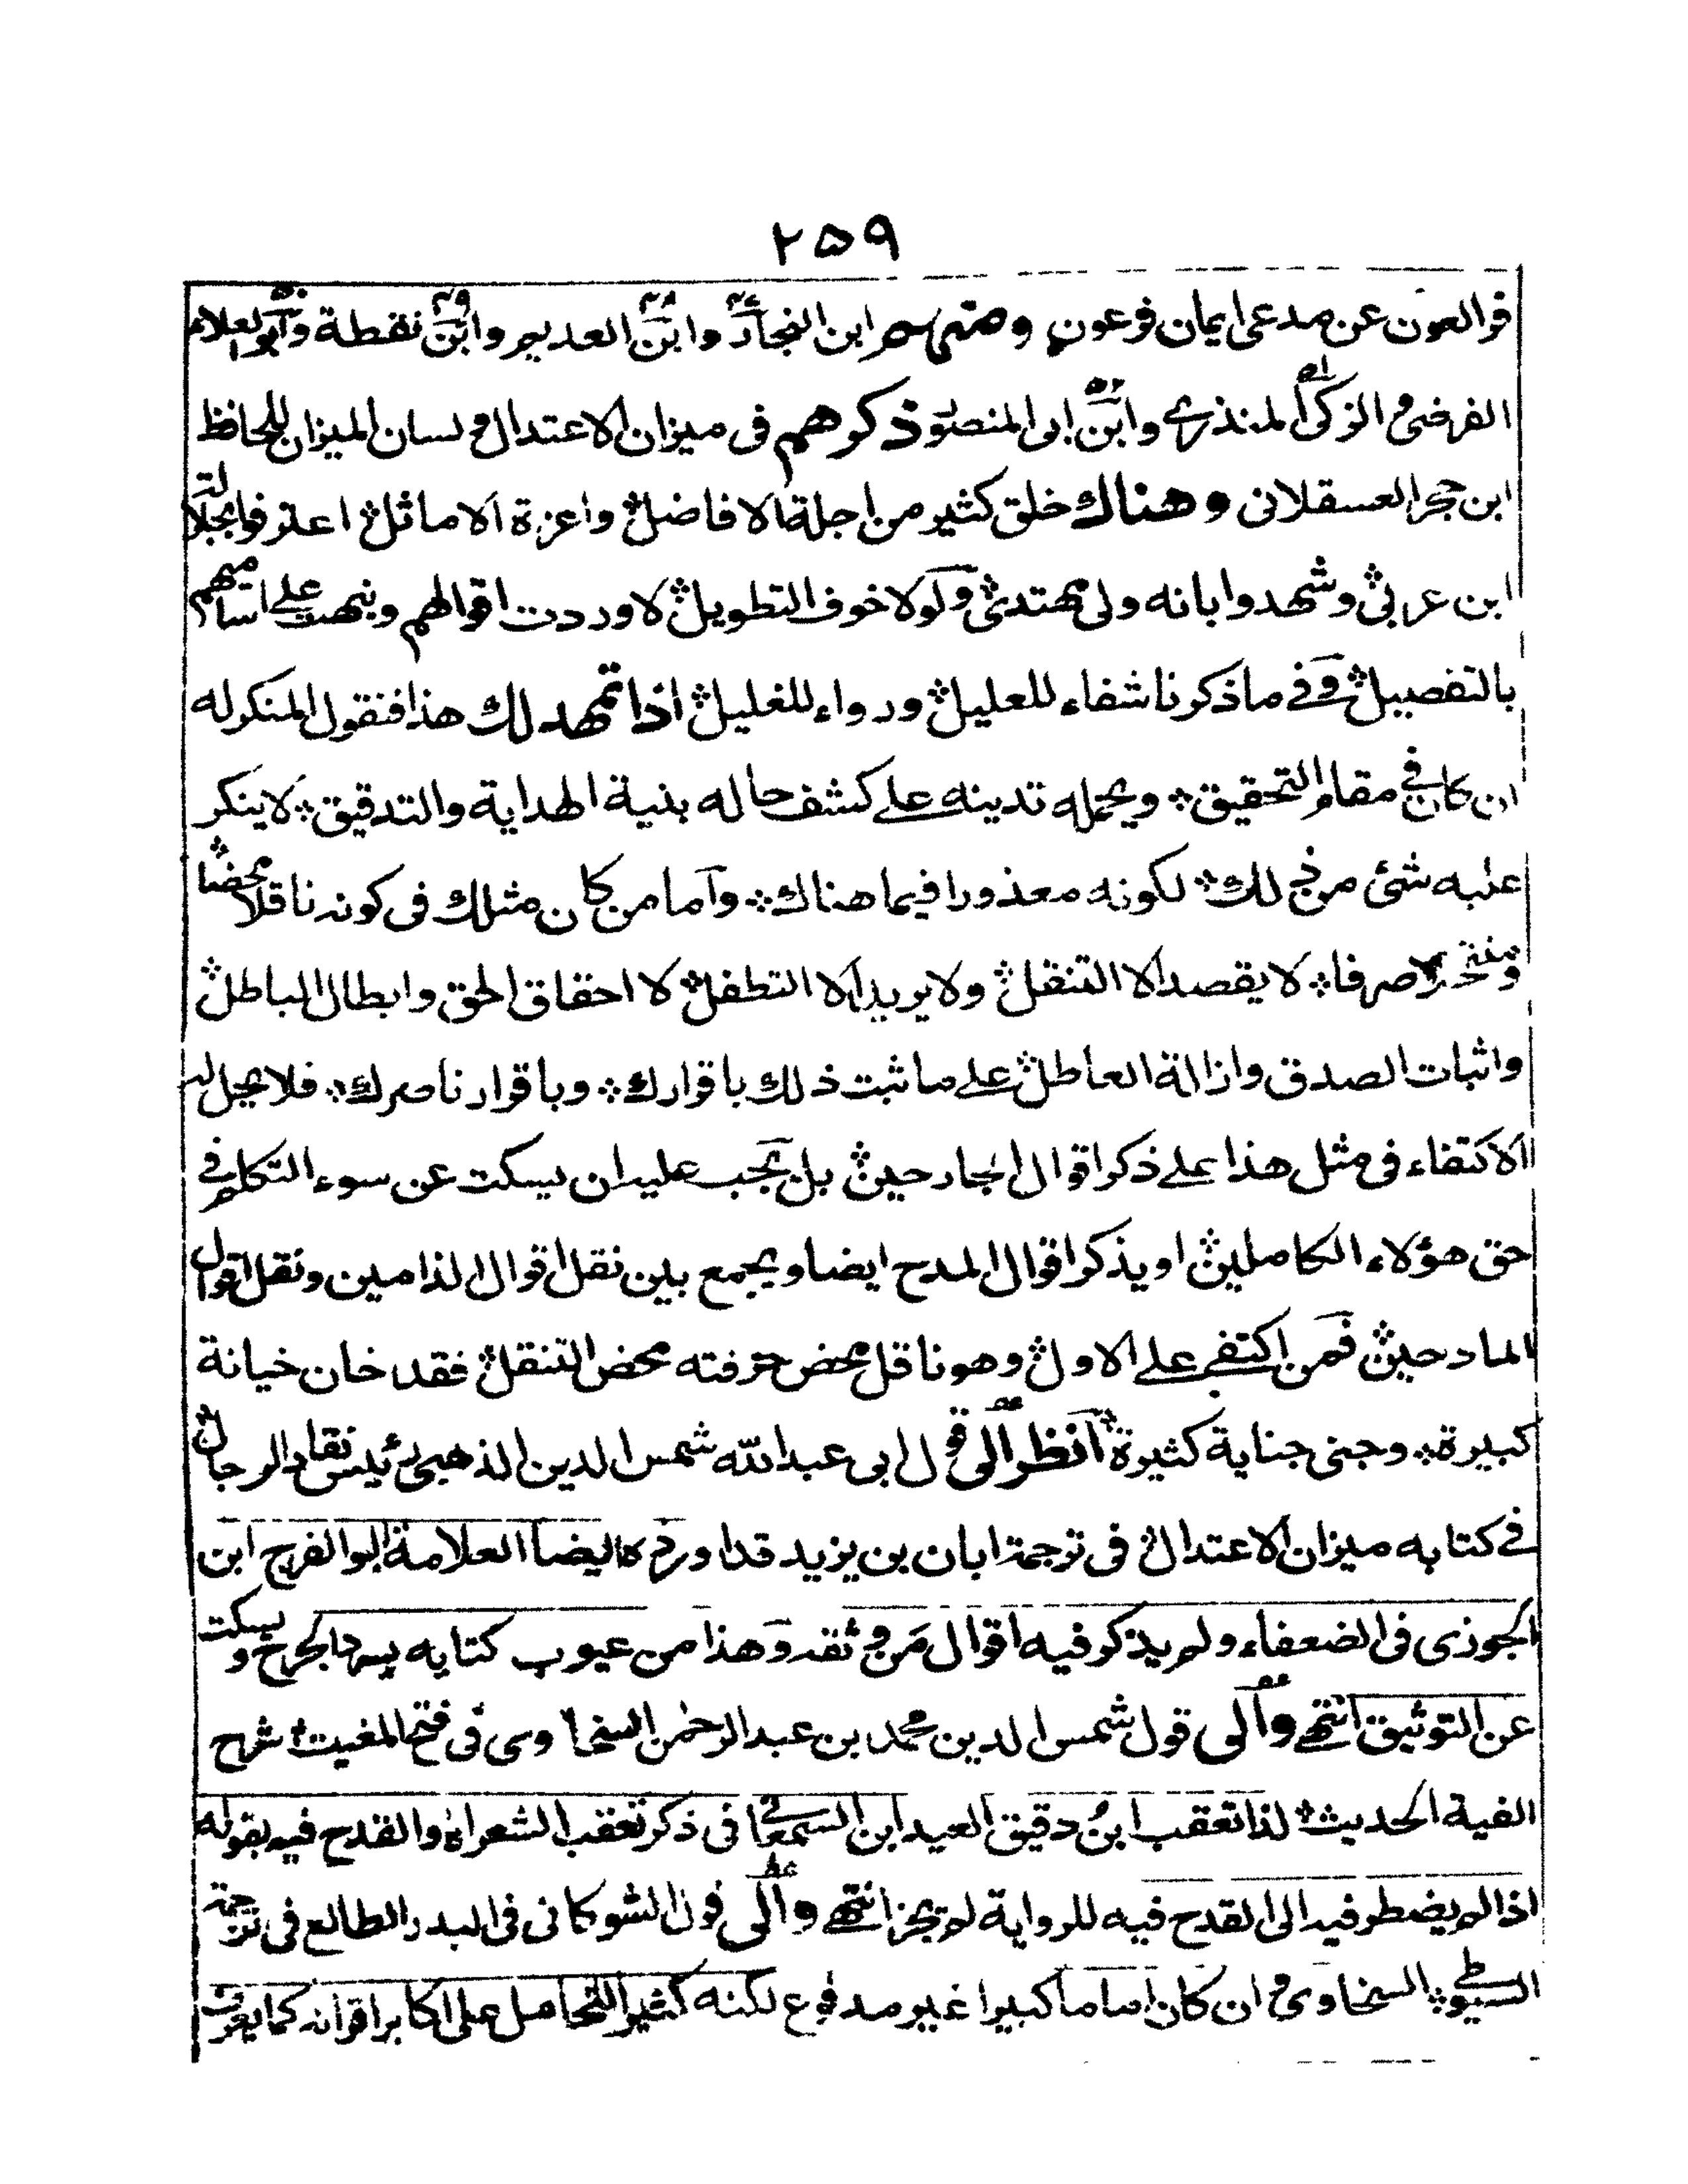 ۲۵۹
فر العون عن مدعی ایمان فرعون ومنهم ابن النجار وابن العدیم وابن نقطة وابو العلاء
الفرضی والزکی المنذری وابن ابی المنصور ذکرهم فی میزان الاعتدال ولسان المیزان للحافظ
ابن حجر العسقلانی وهناك خلق کثیر من اجلة الافاضل واعزة الاماثل اعترفوا بجلالة
ابن عربی وشهدوا بانه ولی مهتدی ولولا خوف التطویل لاوردت اقوالهم ونبهت علی اسامیهم
بالتفصیل وفی ما ذکرنا شفاء للعلیل ورواء للغلیل اذا تمهد لك هذا فنقول المنکر له
ان کان فی مقام التحقیق ویحمله تدینه علی کشف حاله بنیة الهدایة والتدقیق لا ینکر
علیه شئ من ذلك لکونه معذورا فیما هناك واما من کان مثلك فی کونه ناقلا محضا
ومنتحلا صرفا لا یقصد الا التنقل ولا یرید الا التطفل لا احقاق الحق وابطال الباطل
واثبات الصدق وازالة العاطل علی ما ثبت ذلك باقرارك وباقرار ناصرك فلا یحل له
الاکتفاء فی مثل هذا علی ذکر اقوال الجارحین بل یجب علیه ان یسکت عن سوء التکلم فی
حق هؤلاء الکاملین او یذکر اقوال المدح ایضا ویجمع بین نقل اقوال الذامین ونقل اقوال
المادحین فمن اکتفی علی الاول وهو ناقل محض حرفته محض التنقل فقد خان خیانة
کبیرة وجنی جنایة کثیرة انظر الی قول ابی عبد الله شمس الدین الذهبی رئیس نقاد الرجال
فی کتابه میزان الاعتدال فی ترجمة ابان بن یزید قد اورده ایضا العلامة ابو الفرج ابن
الجوزی فی الضعفاء ولم یذکر فیه اقوال من وثقه وهذا من عیوب کتابه یسرد الجرح ویسکت
عن التوثیق انتهی والی قول شمس الدین محمد بن عبد الرحمن السخاوی فی فتح المغیث شرح
الفیة الحدیث لذا تعقب ابن دقیق العید ابن السمعانی فی ذکره بعض الشعراء والقدح فیه بقوله
اذا لم یضطر فیه الی القدح فیه للروایة لم یجز انتهی والی قول الشوکانی فی البدر الطالع فی ترجمة
السیوطی السخاوی وان کان اماما کبیرا غیر مدفوع لکنه کثیر التحامل علی اکابر اقرانه کما یعرف